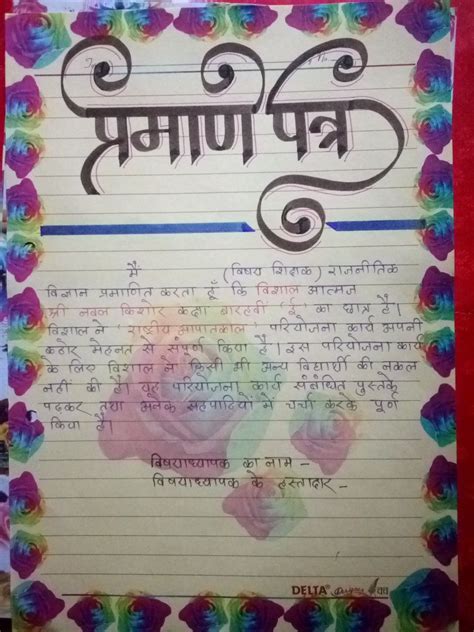 प्रमाण पत्र
मैं (विषय शिक्षक) राजनीतिक
विज्ञान प्रमाणित करता हूँ कि विशाल आत्मज
श्री नवल किशोर कक्षा बारहवीं 'ई' का छात्र है।
विशाल ने 'राष्ट्रीय आपातकाल' परियोजना कार्य अपनी
कठोर मेहनत से संपूर्ण किया है। इस परियोजना कार्य
के लिए विशाल ने किसी भी अन्य विद्यार्थी की नकल
नहीं की है। यह परियोजना कार्य संबंधित पुस्तकें
पढ़कर तथा अनेक सहपाठियों में चर्चा करके पूर्ण
किया है।
विषयाध्यापक का नाम -
विषयाध्यापक के हस्ताक्षर -
DELTA